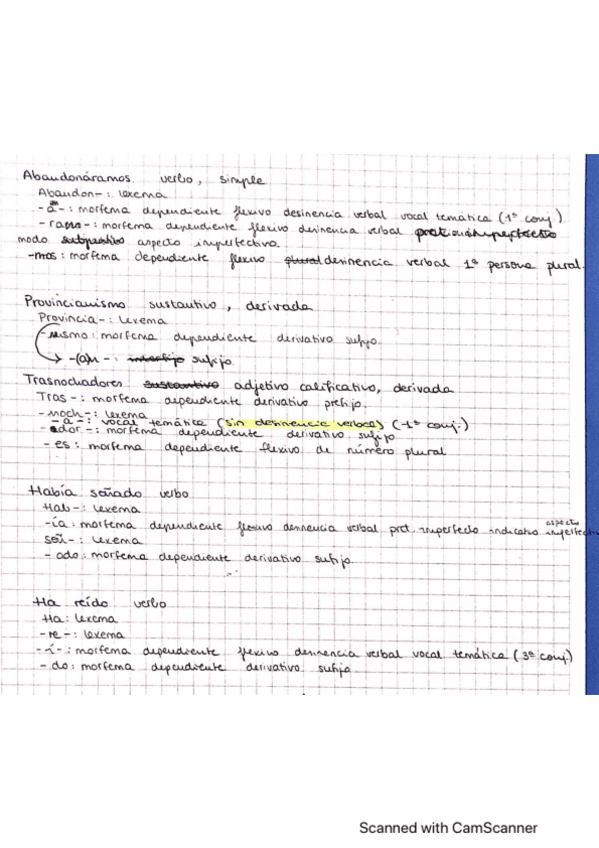 Abandonáramos verbo, simple
Abandon-: lexema
-á-: morfema dependiente flexivo desinencia verbal vocal temática (1ª conj.)
-ra-: morfema dependiente flexivo desinencia verbal pretérito imperfecto
modo subjuntivo aspecto imperfectivo.
-mos: morfema dependiente flexivo plural desinencia verbal 1ª persona plural.
Provincianismo sustantivo, derivada
Provincia-: lexema
-ismo: morfema dependiente derivativo sufijo.
-(a)n-: interfijo sufijo.
Trasnochadores sustantivo adjetivo calificativo, derivada
Tras-: morfema dependiente derivativo prefijo.
-noch-: lexema
-a-: vocal temática (sin desinencia verbal) (-1ª conj.)
-dor-: morfema dependiente derivativo sufijo
-es: morfema dependiente flexivo de número plural
Había soñado verbo
Hab-: lexema
-ía: morfema dependiente flexivo desinencia verbal pret. imperfecto indicativo aspecto
soñ-: lexema
-ado: morfema dependiente derivativo sufijo.
Ha reído verbo
Ha: lexema
-re-: lexema
-í-: morfema dependiente flexivo desinencia verbal vocal temática (3ª conj.)
-do: morfema dependiente derivativo sufijo
Scanned with CamScanner